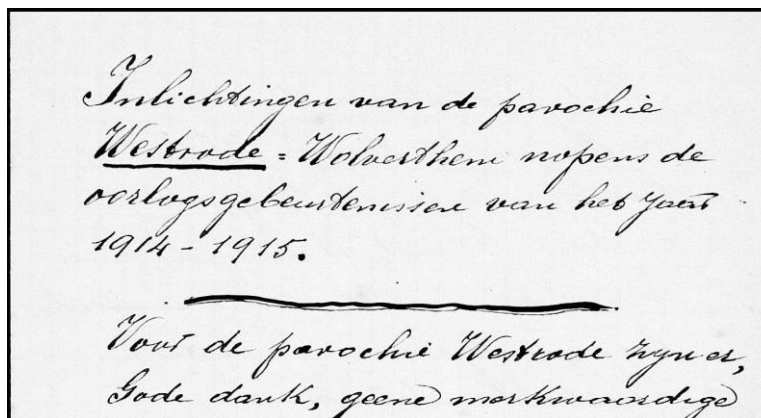 Inlichtingen van de parochie
Westrode = Wolverthem nopens de
oorlogsgebeurtenissen van het Jaar
1914 - 1915.
Voor de parochie Westrode zyn er,
Gode dank, geene merkwaardige